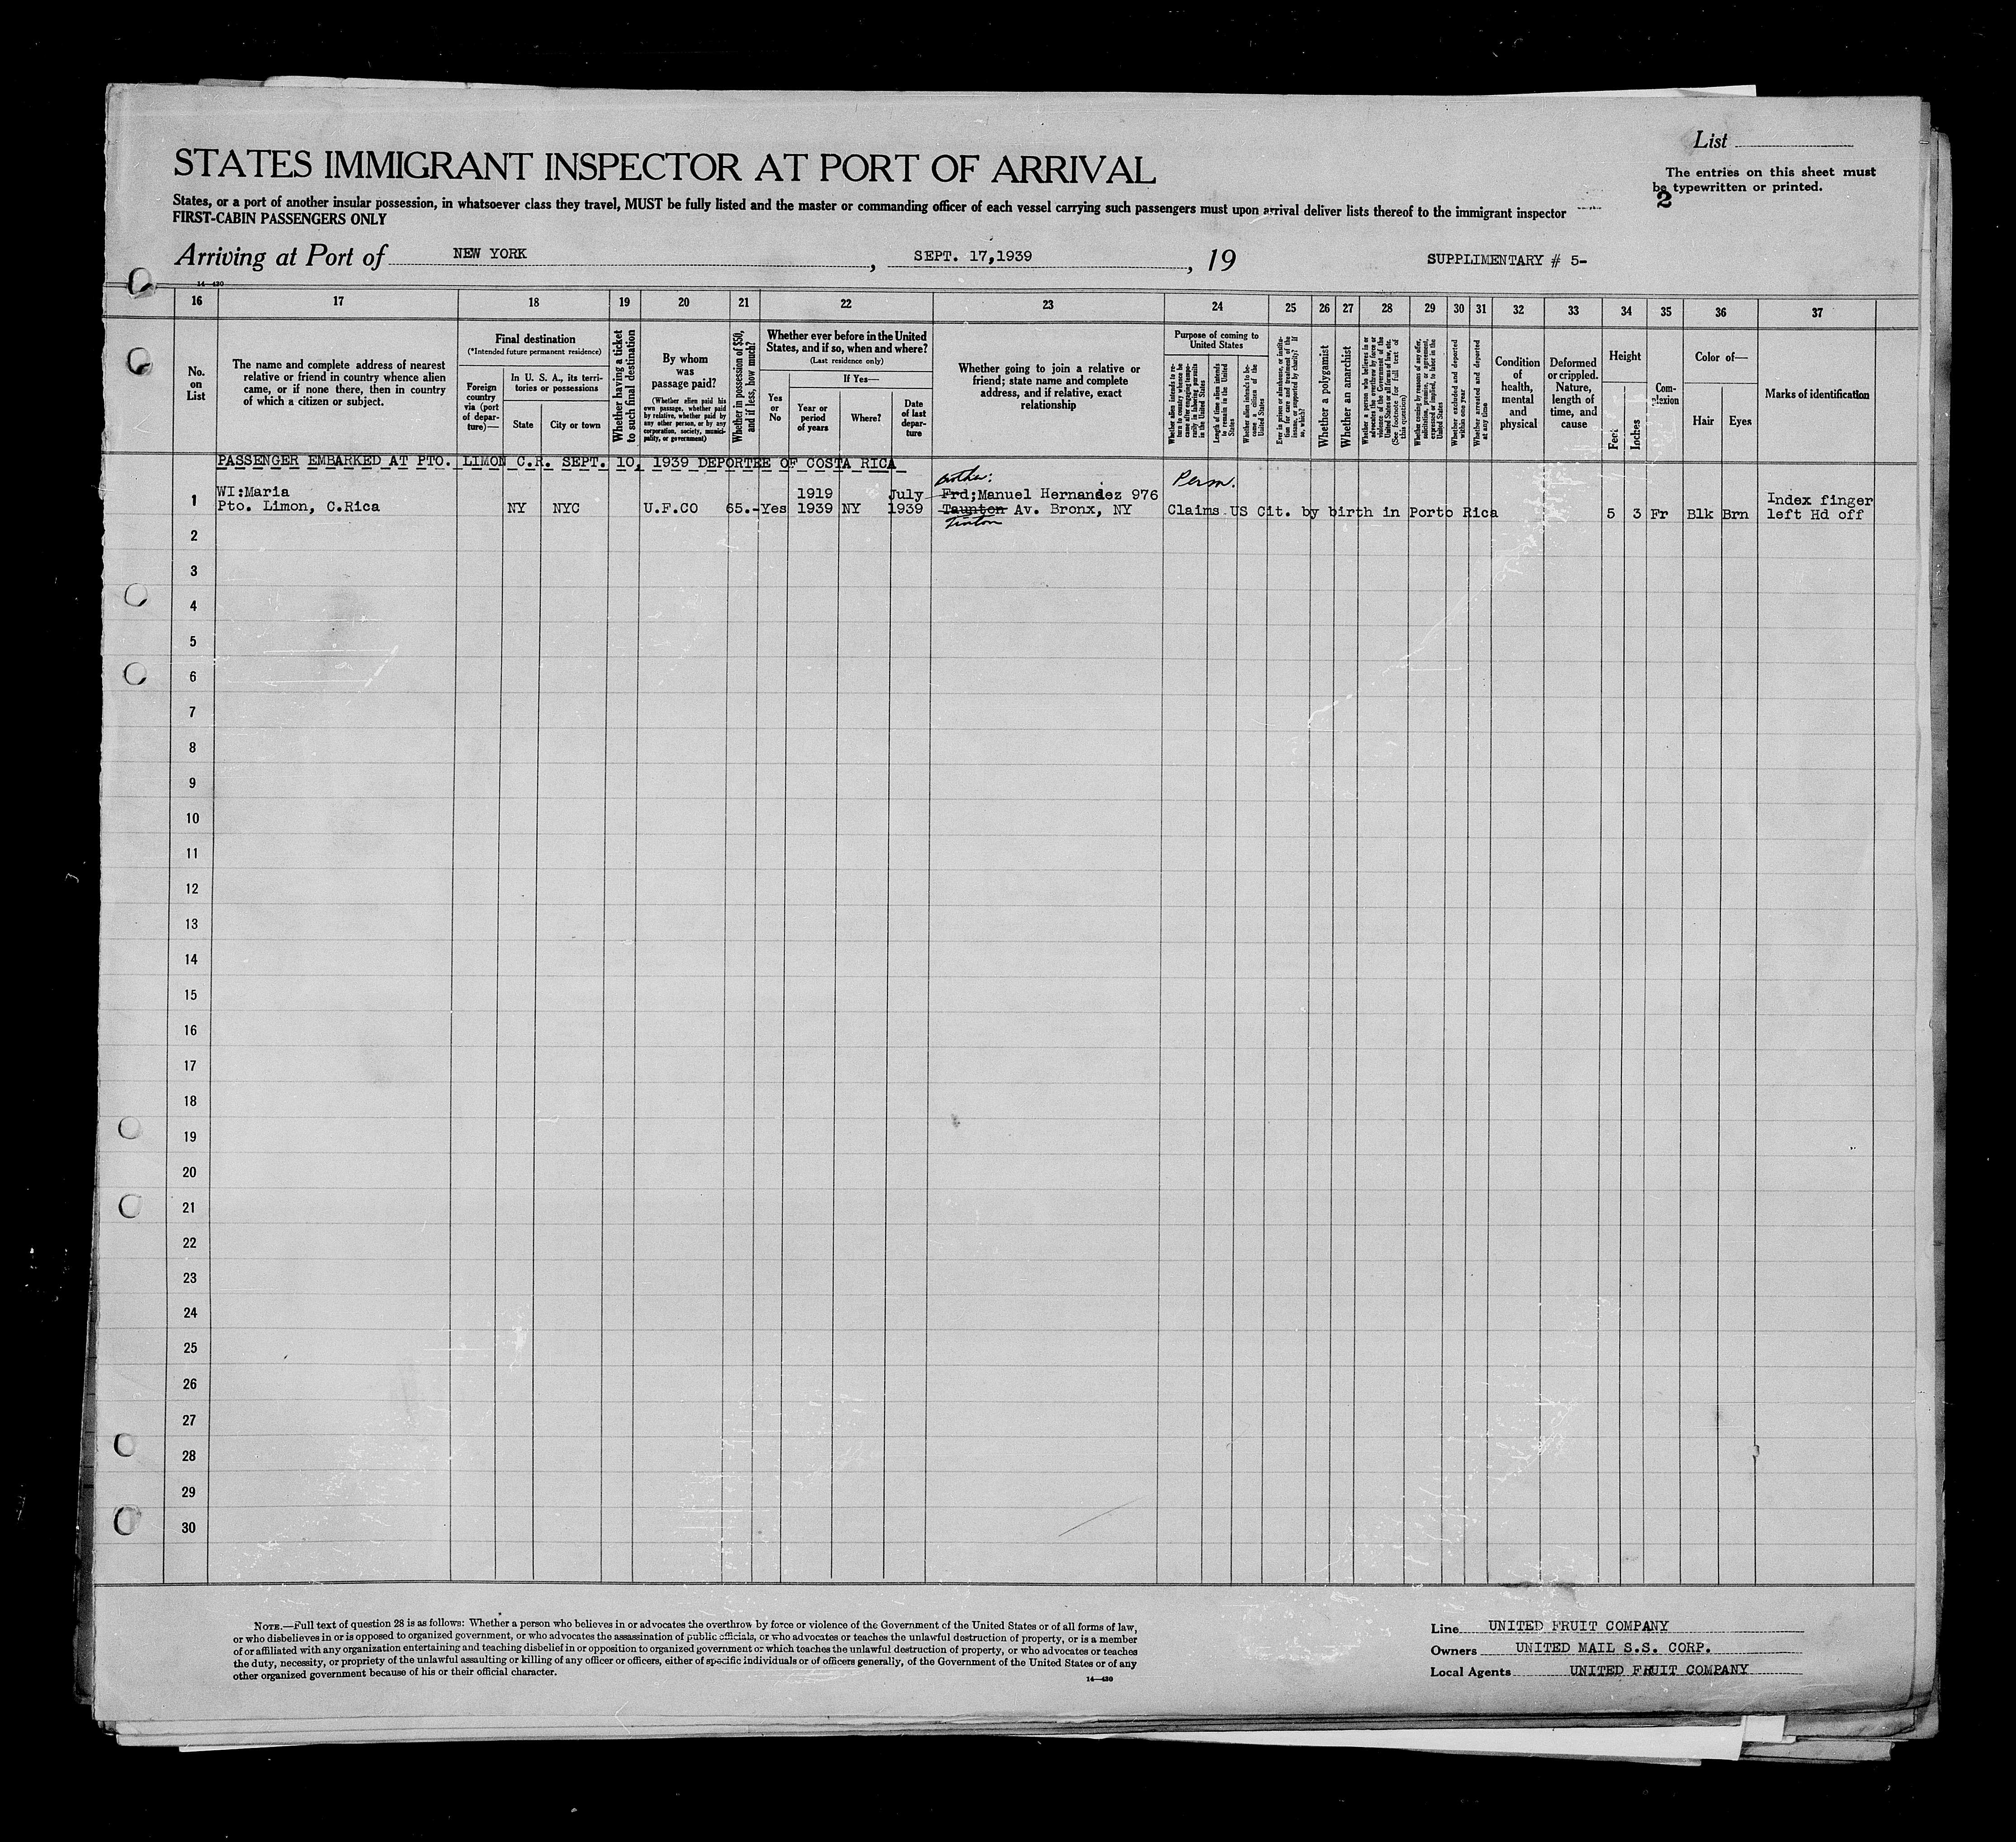 List
STATES IMMIGRANT INSPECTOR AT PORT OF ARRIVAL
The entries on this sheet must
be typewritten or printed.
2
States, or a port of another insular possession, in whatsoever class they travel, MUST be fully listed and the master or commanding officer of each vessel carrying such passengers must upon arrival deliver lists thereof to the immigrant inspector
FIRST-CABIN PASSENGERS ONLY
Arriving at Port of NEW YORK, SEPT. 17,1939, 19 SUPPLIMENTARY # 5-
14—430
16 17 18 19 20 21 22 23 24 25 26 27 28 29 30 31 32 33 34 35 36 37
No.
on
List
The name and complete address of nearest
relative or friend in country whence alien
came, or if none there, then in country
of which a citizen or subject.
Final destination
(*Intended future permanent residence)
Foreign
country
via (port
of depar-
ture)—
In U. S. A., its terri-
tories or possessions
State
City or town
Whether having a ticket
to such final destination
By whom
was
passage paid?
(Whether alien paid his
own passage, whether paid
by relative, whether paid by
any other person, or by any
corporation, society, munici-
pality, or government)
Whether in possession of $50,
and if less, how much?
Whether ever before in the United
States, and if so, when and where?
(Last residence only)
Yes
or
No
If Yes—
Year or
period
of years
Where?
Date
of last
depar-
ture
Whether going to join a relative or
friend; state name and complete
address, and if relative, exact
relationship
Purpose of coming to
United States
Whether alien intends to re-
turn to country whence he
came after engaging tempo-
rarily in laboring pursuits
in the United States
Length of time alien intends
to remain in the United
States
Whether alien intends to be-
come a citizen of the
United States
Ever in prison or almshouse, or institu-
tion for care and treatment of the
insane, or supported by charity? If
so, which?
Whether a polygamist
Whether an anarchist
Whether a person who believes in or
advocates the overthrow by force or
violence of the Government of the
United States or all forms of law, etc.
(See footnote for full text of
this question)
Whether coming by reasons of any offer,
solicitation, promise, or agreement,
expressed or implied, to labor in the
United States
Whether excluded and deported
within one year
Whether arrested and deported
at any time
Condition
of
health,
mental
and
physical
Deformed
or crippled.
Nature,
length of
time, and
cause
Height
Feet
Inches
Com-
plexion
Color of—
Hair
Eyes
Marks of identification
PASSENGER EMBARKED AT PTO. LIMON C.R. SEPT. 10, 1939 DEPORTEE OF COSTA RICA
brother: Perm.
WI:Maria 1919 July Frd;Manuel Hernandez 976 Index finger
1 Pto. Limon, C.Rica NY NYC U.F.CO 65.- Yes 1939 NY 1939 Taunton Av. Bronx, NY Claims US Cit. by birth in Porto Rica 5 3 Fr Blk Brn left Hd off
Tinton
2
3
4
5
6
7
8
9
10
11
12
13
14
15
16
17
18
19
20
21
22
23
24
25
26
27
28
29
30
NOTE.—Full text of question 28 is as follows: Whether a person who believes in or advocates the overthrow by force or violence of the Government of the United States or of all forms of law,
or who disbelieves in or is opposed to organized government, or who advocates the assassination of public officials, or who advocates or teaches the unlawful destruction of property, or is a member
of or affiliated with any organization entertaining and teaching disbelief in or opposition to organized government or which teaches the unlawful destruction of property, or who advocates or teaches
the duty, necessity, or propriety of the unlawful assaulting or killing of any officer or officers, either of specific individuals or of officers generally, of the Government of the United States or of any
other organized government because of his or their official character.
14—430
Line UNITED FRUIT COMPANY
Owners UNITED MAIL S.S. CORP.
Local Agents UNITED FRUIT COMPANY